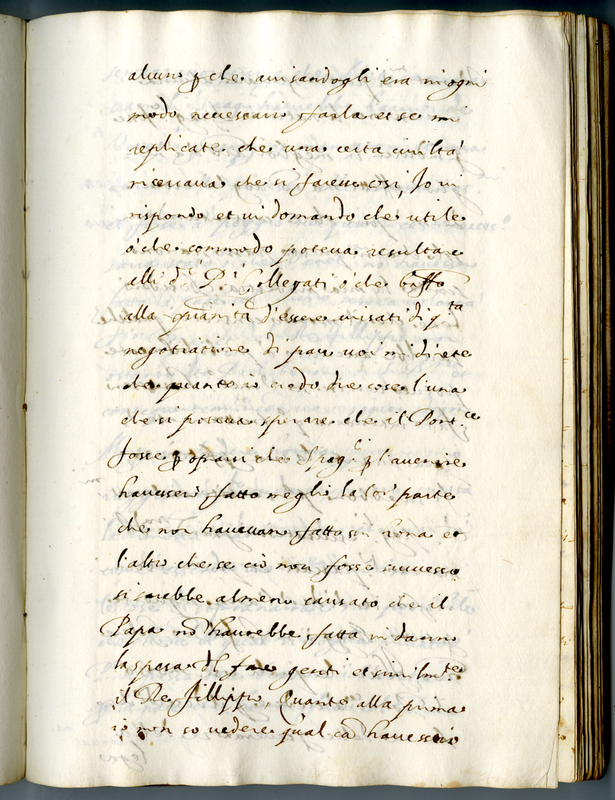 alcuno ꝑche avisandogli era in ogni
modo necessario farla et se mi
replicate che una certa civiltà
ricercava che si facesse così, Io vi
rispondo et vi domando che utile
ò che commodo poteva resultare
alli d.i P.i Collegati ò che
alla d'essere avisati di q.ta
negotiatione di pace voi mi direte
che quanto io credo due cose l'una
che si poteva sperare che il Pont.ce
fosse ꝑ oprarsi che Spag.li ꝑ l'avenire
havesser fatto meglio la lor parte
che non havevan fatto sin hora et
l'altro che se ciò non fosse successo
si sarebbe almeno causato che il
Papa nõ haurebbe fatta in danno
la spesa di far genti et similm.te
il Re Filippo, Quanto alla prima
io non so vedere qual cã havessero